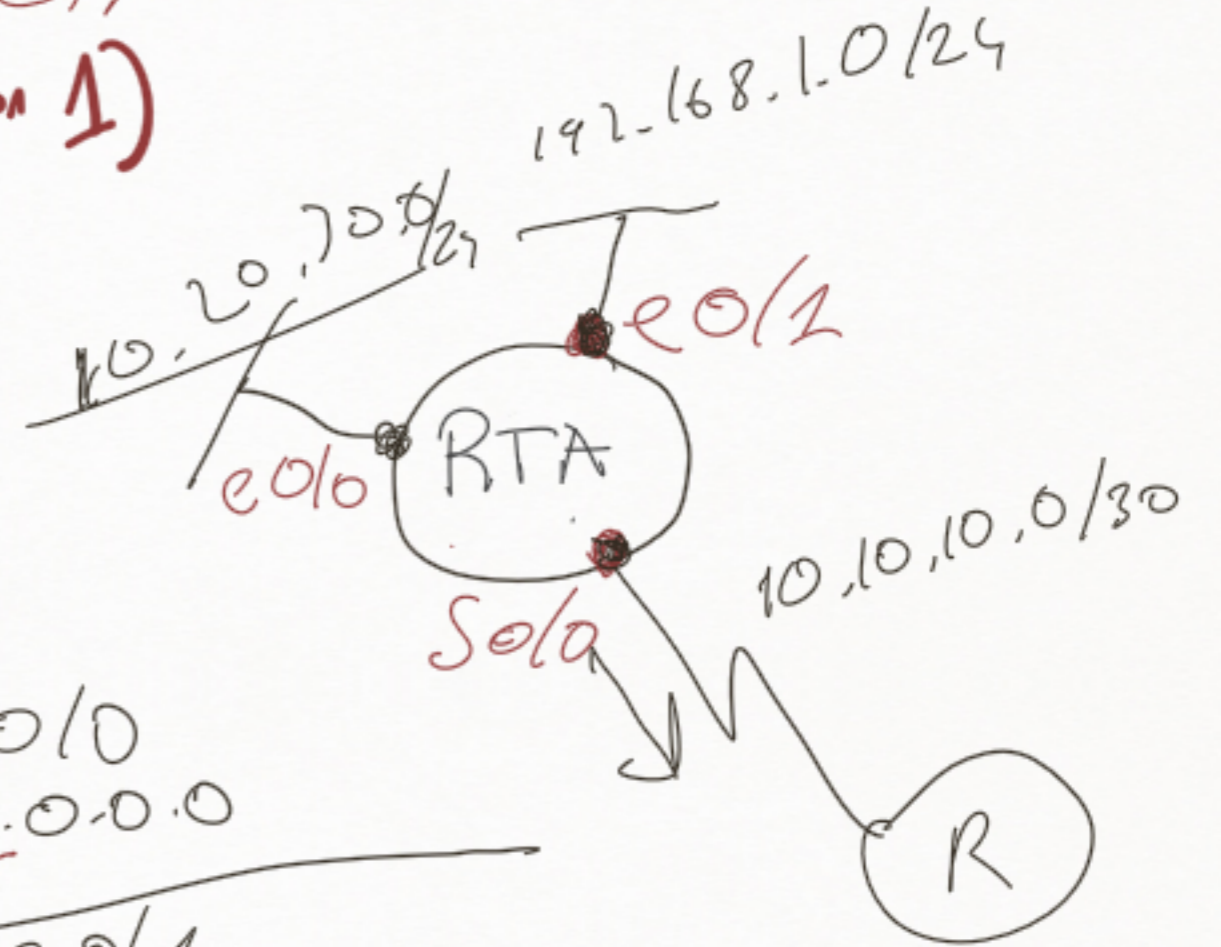 1)
192.168.1.0/24
10.20.30.0/24
e0/1
RTA
e0/0
10.10.10.0/30
S0/0
0/0
.0.0.0
R